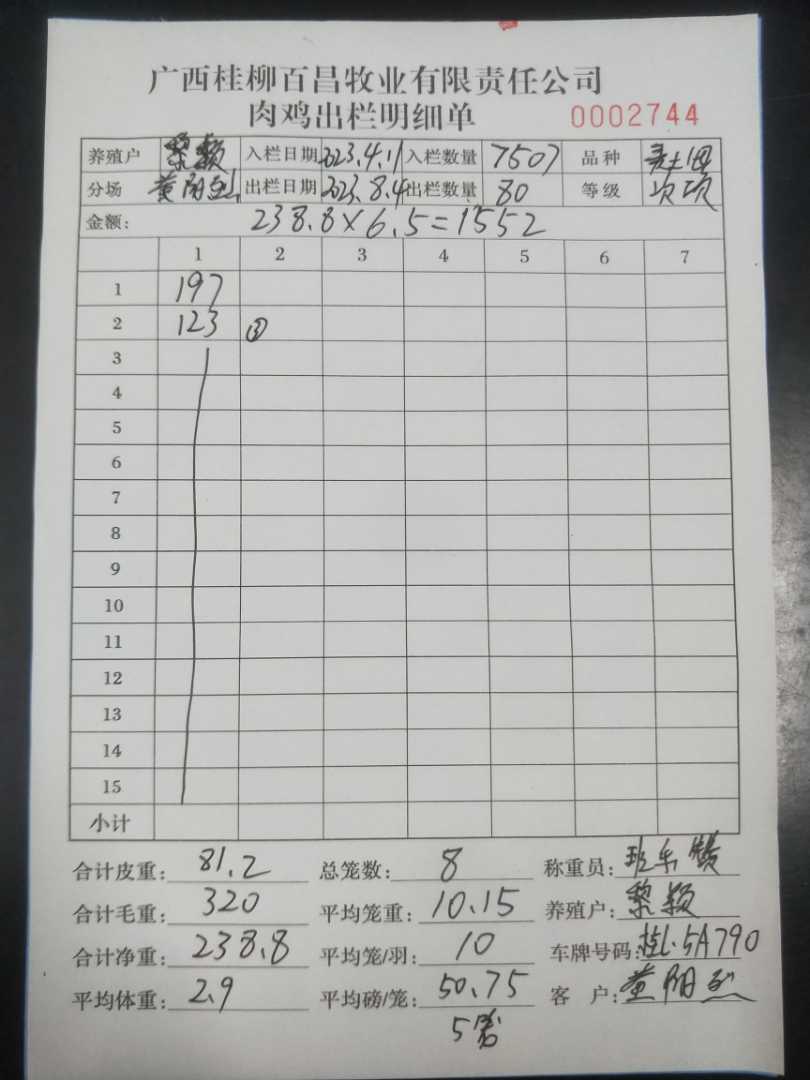 广西桂柳百昌牧业有限责任公司
肉鸡出栏明细单 0002744
养殖户 黎颖 入栏日期 2023.4.11 入栏数量 7507 品种 土
分场 黄阳烈 出栏日期 2023.8.4 出栏数量 80 等级 次项
金额: 238.8×6.5=1552
1 2 3 4 5 6 7
1 197
2 123 ③
3
4
5
6
7
8
9
10
11
12
13
14
15
小计
合计皮重: 81.2 总笼数: 8 称重员: 班
合计毛重: 320 平均笼重: 10.15 养殖户: 黎颖
合计净重: 238.8 平均笼/羽: 10 车牌号码: 桂L·5A790
平均体重: 2.9 平均磅/笼: 50.75 客 户: 黄阳烈
5